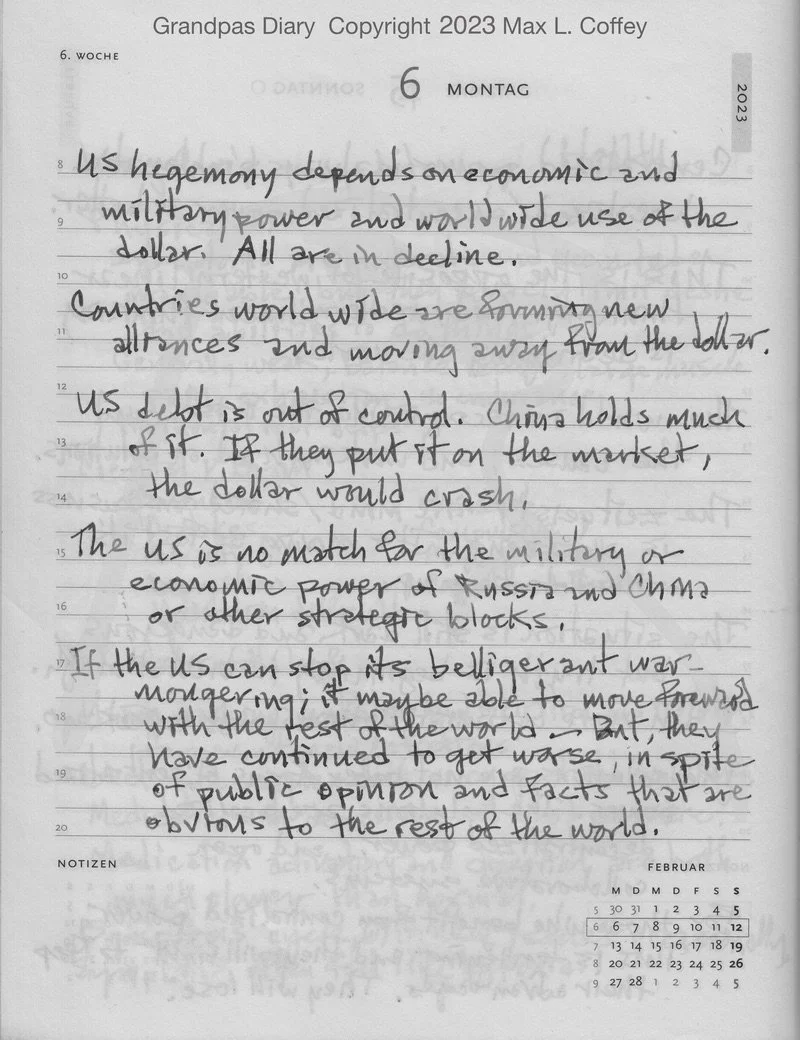 Grandpas Diary Copyright 2023 Max L. Coffey
6. WOCHE
6 MONTAG
2023
8 US hegemony depends on economic and
9 military power and world wide use of the
dollar. All are in decline.
10
Countries world wide are forming new
11 alliances and moving away from the dollar.
12
US debt is out of control. China holds much
13 of it. If they put it on the market,
14 the dollar would crash.
15 The US is no match for the military or
economic power of Russia and China
16 or other strategic blocks.
17 If the US can stop its belligerant war-
mongering; it maybe able to move foreward
18 with the rest of the world - But, they
have continued to get worse, in spite
19 of public opinion and facts that are
20 obvious to the rest of the world.
NOTIZEN
FEBRUAR
M D M D F S S
5 30 31 1 2 3 4 5
6 6 7 8 9 10 11 12
7 13 14 15 16 17 18 19
8 20 21 22 23 24 25 26
9 27 28 1 2 3 4 5